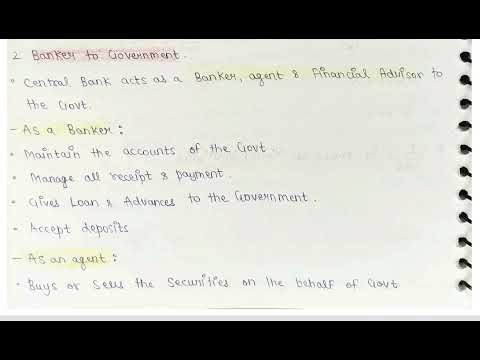 2. Banker to Government.
• Central Bank acts as a Banker, agent & Financial Advisor to
the Govt.
- As a Banker :
• Maintain the accounts of the Govt
• Manage all receipt & payment.
• Gives Loan & Advances to the Government.
• Accept deposits
- As an agent :
• Buys or Sells the Securities on the behalf of Govt